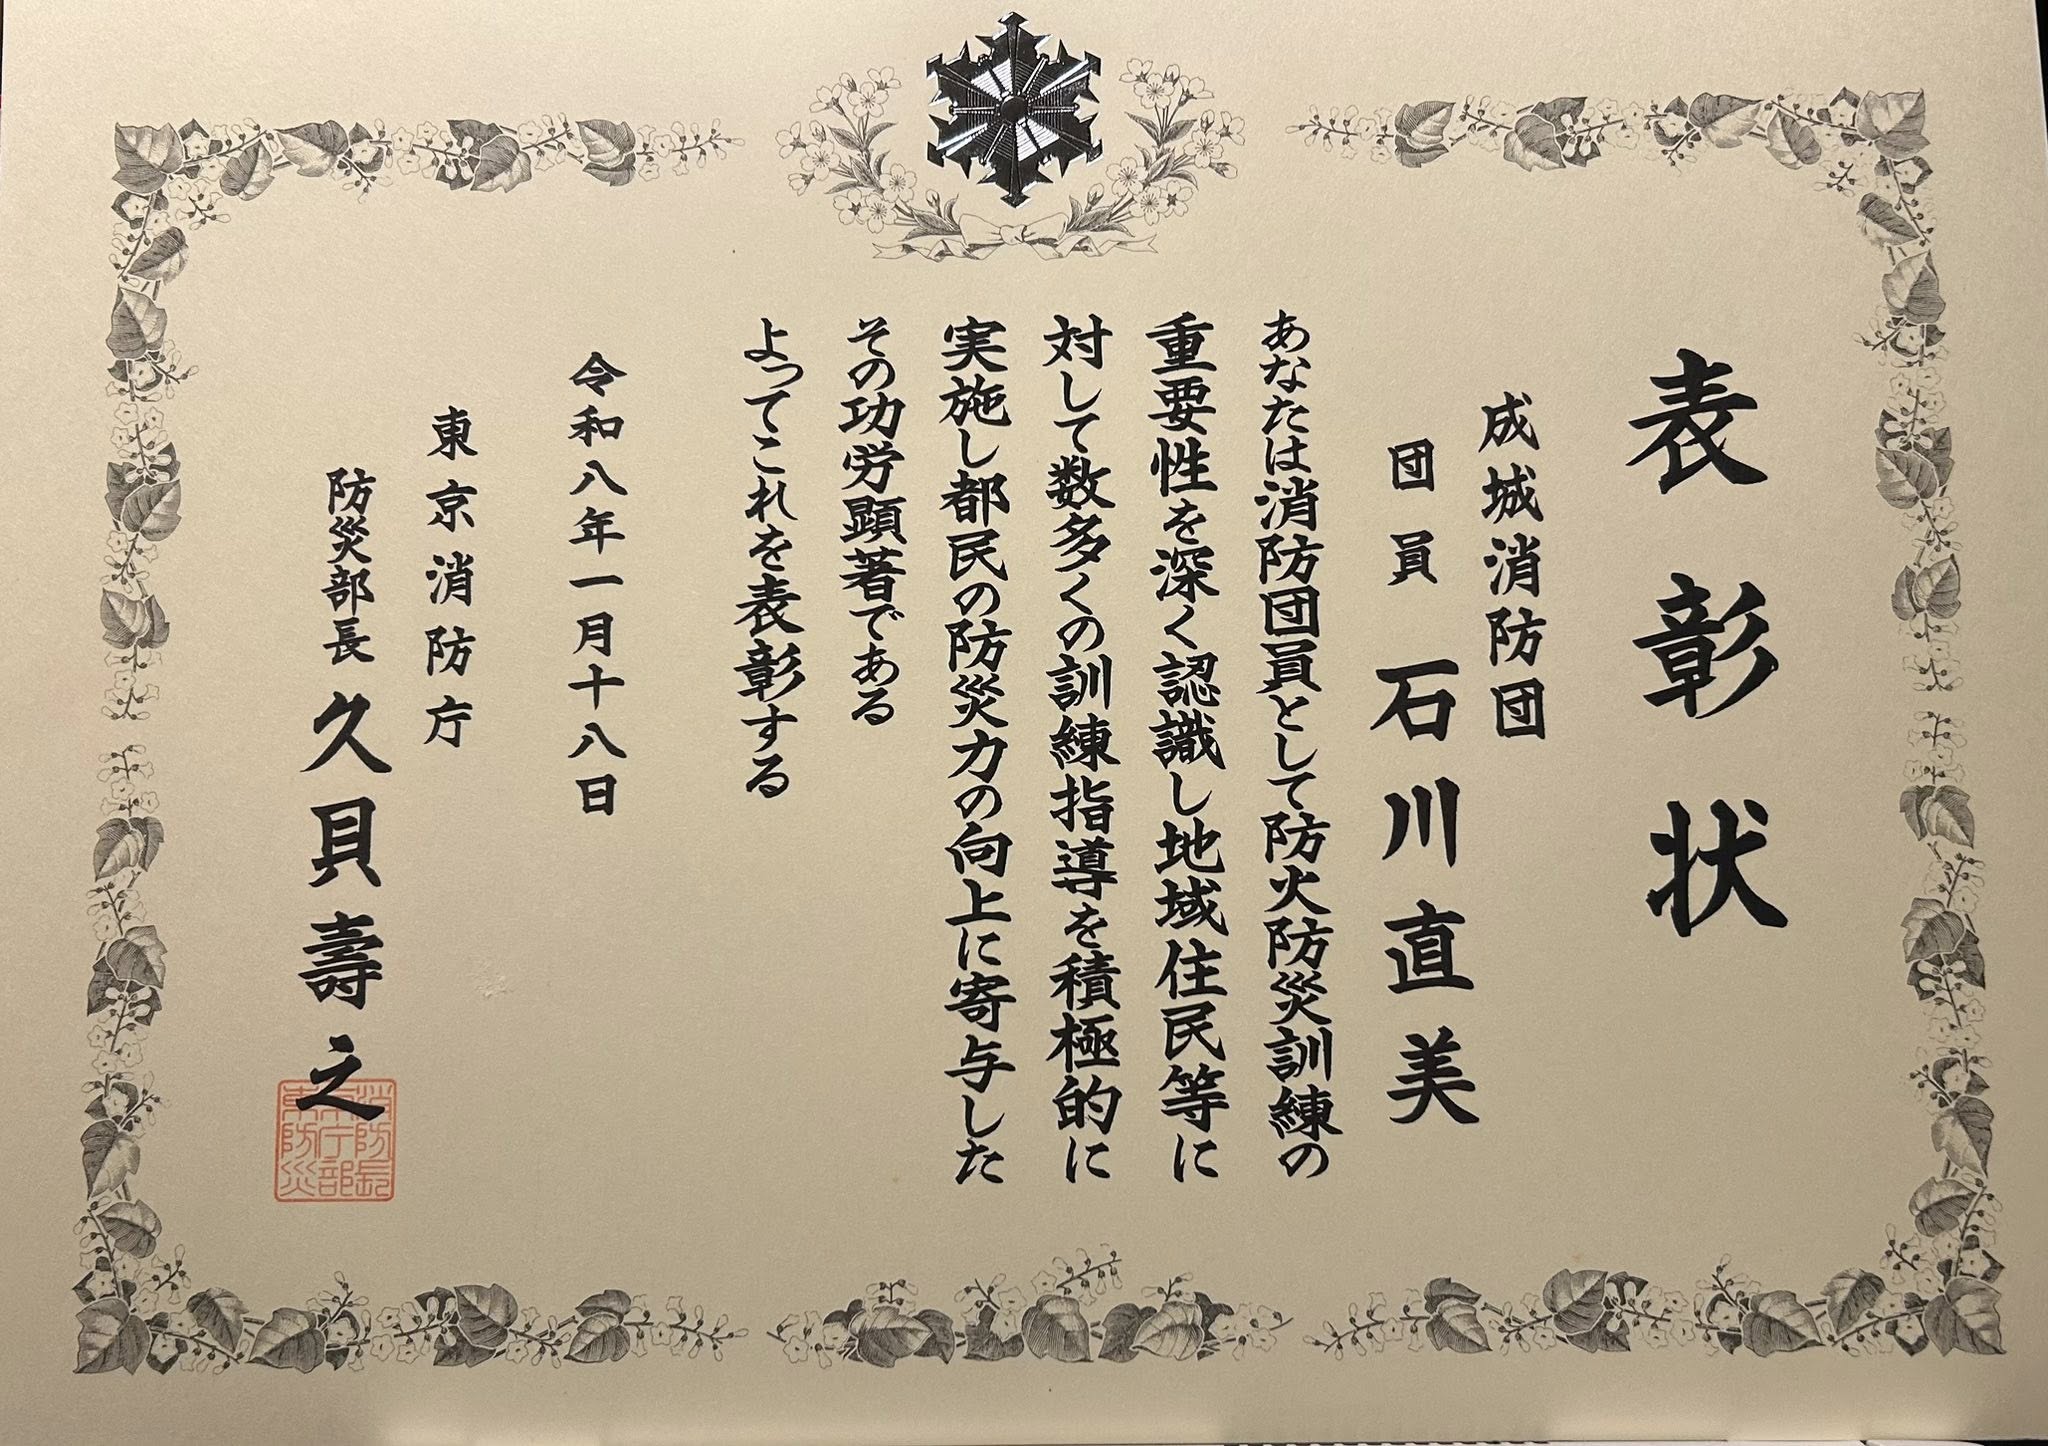 表彰状
成城消防団
団員 石川直美
あなたは消防団員として防火防災訓練の
重要性を深く認識し地域住民等に
対して数多くの訓練指導を積極的に
実施し都民の防災力の向上に寄与した
その功労顕著である
よってこれを表彰する
令和八年一月十八日
東京消防庁
防災部長 久貝壽之
消防長
京庁部
東防災